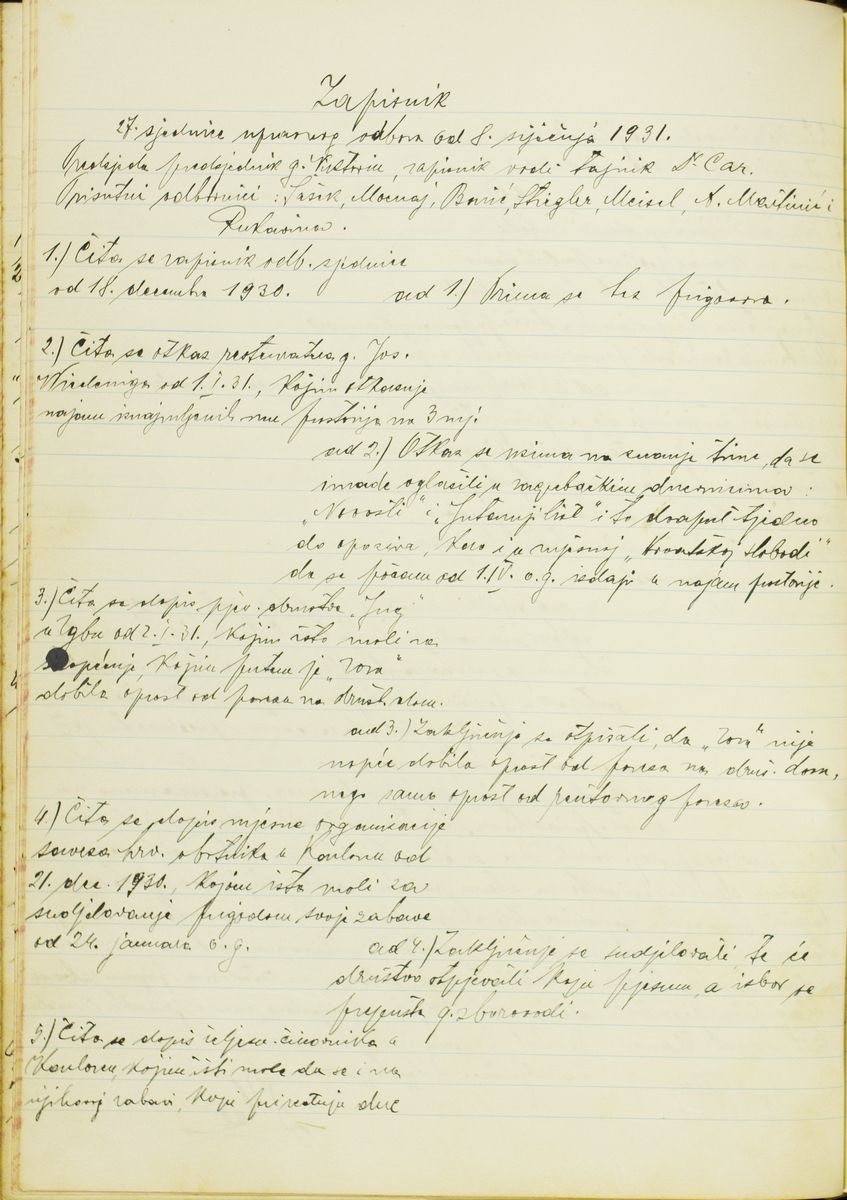 Zapisnik
27. sjednice upravnog odbora od 8. siječnja 1931.
Predsjeda predsjednik g. , zapisnik vodi tajnik Dr Car.
Prisutni odbornici : Šašek, Mocnaj, Banić, Stiegler, Meisel, A. Martinić i
Rukavina.
1.) Čita se zapisnik odb. sjednice
od 18. decembra 1930.
ad 1.) Prima se bez prigovora.
2.) Čita se otkaz restauratera g. Jos.
od 1.I.31., kojim otkazuje
najam iznajmljenih mu prostorija na 3 mj.
ad 2.) Otkaz se uzima na znanje time, da se
imade oglasiti u zagrebačkim dnevnicima :
„Novosti“ i „Jutarnji list“ i to dvaput tjedno
do opoziva, kao i u mjesnoj „Hrvatskoj Slobodi“
da se počam od 1.IV. o.g. izdaju u najam prostorije.
3.) Čita se dopis pjev. društva „Jug“
u Zgbu od 2.I.31., kojim isto moli za
saopćenje, kojim putem je „Zora“
dobila oprost od poreza na društ. dom.
ad 3.) Zaključuje se otpisati, da „Zora“ nije
uopće dobila oprost od poreza na druš. dom,
nego samo oprost od poreza.
4.) Čita se dopis mjesne organizacije
saveza hrv. obrtnika u Karlovcu od
21. dec. 1930., kojim ista moli za
sudjelovanje prigodom svoje zabave
od 24. januara o.g.
ad 4.) Zaključuje se sudjelovati te će
društvo otpjevati koju pjesmu, a izbor se
prepušta g. zborovodi.
5.) Čita se dopis željezn. činovnika u
Karlovcu, kojim isti mole da se i na
njihovoj zabavi, koju priređuju dne